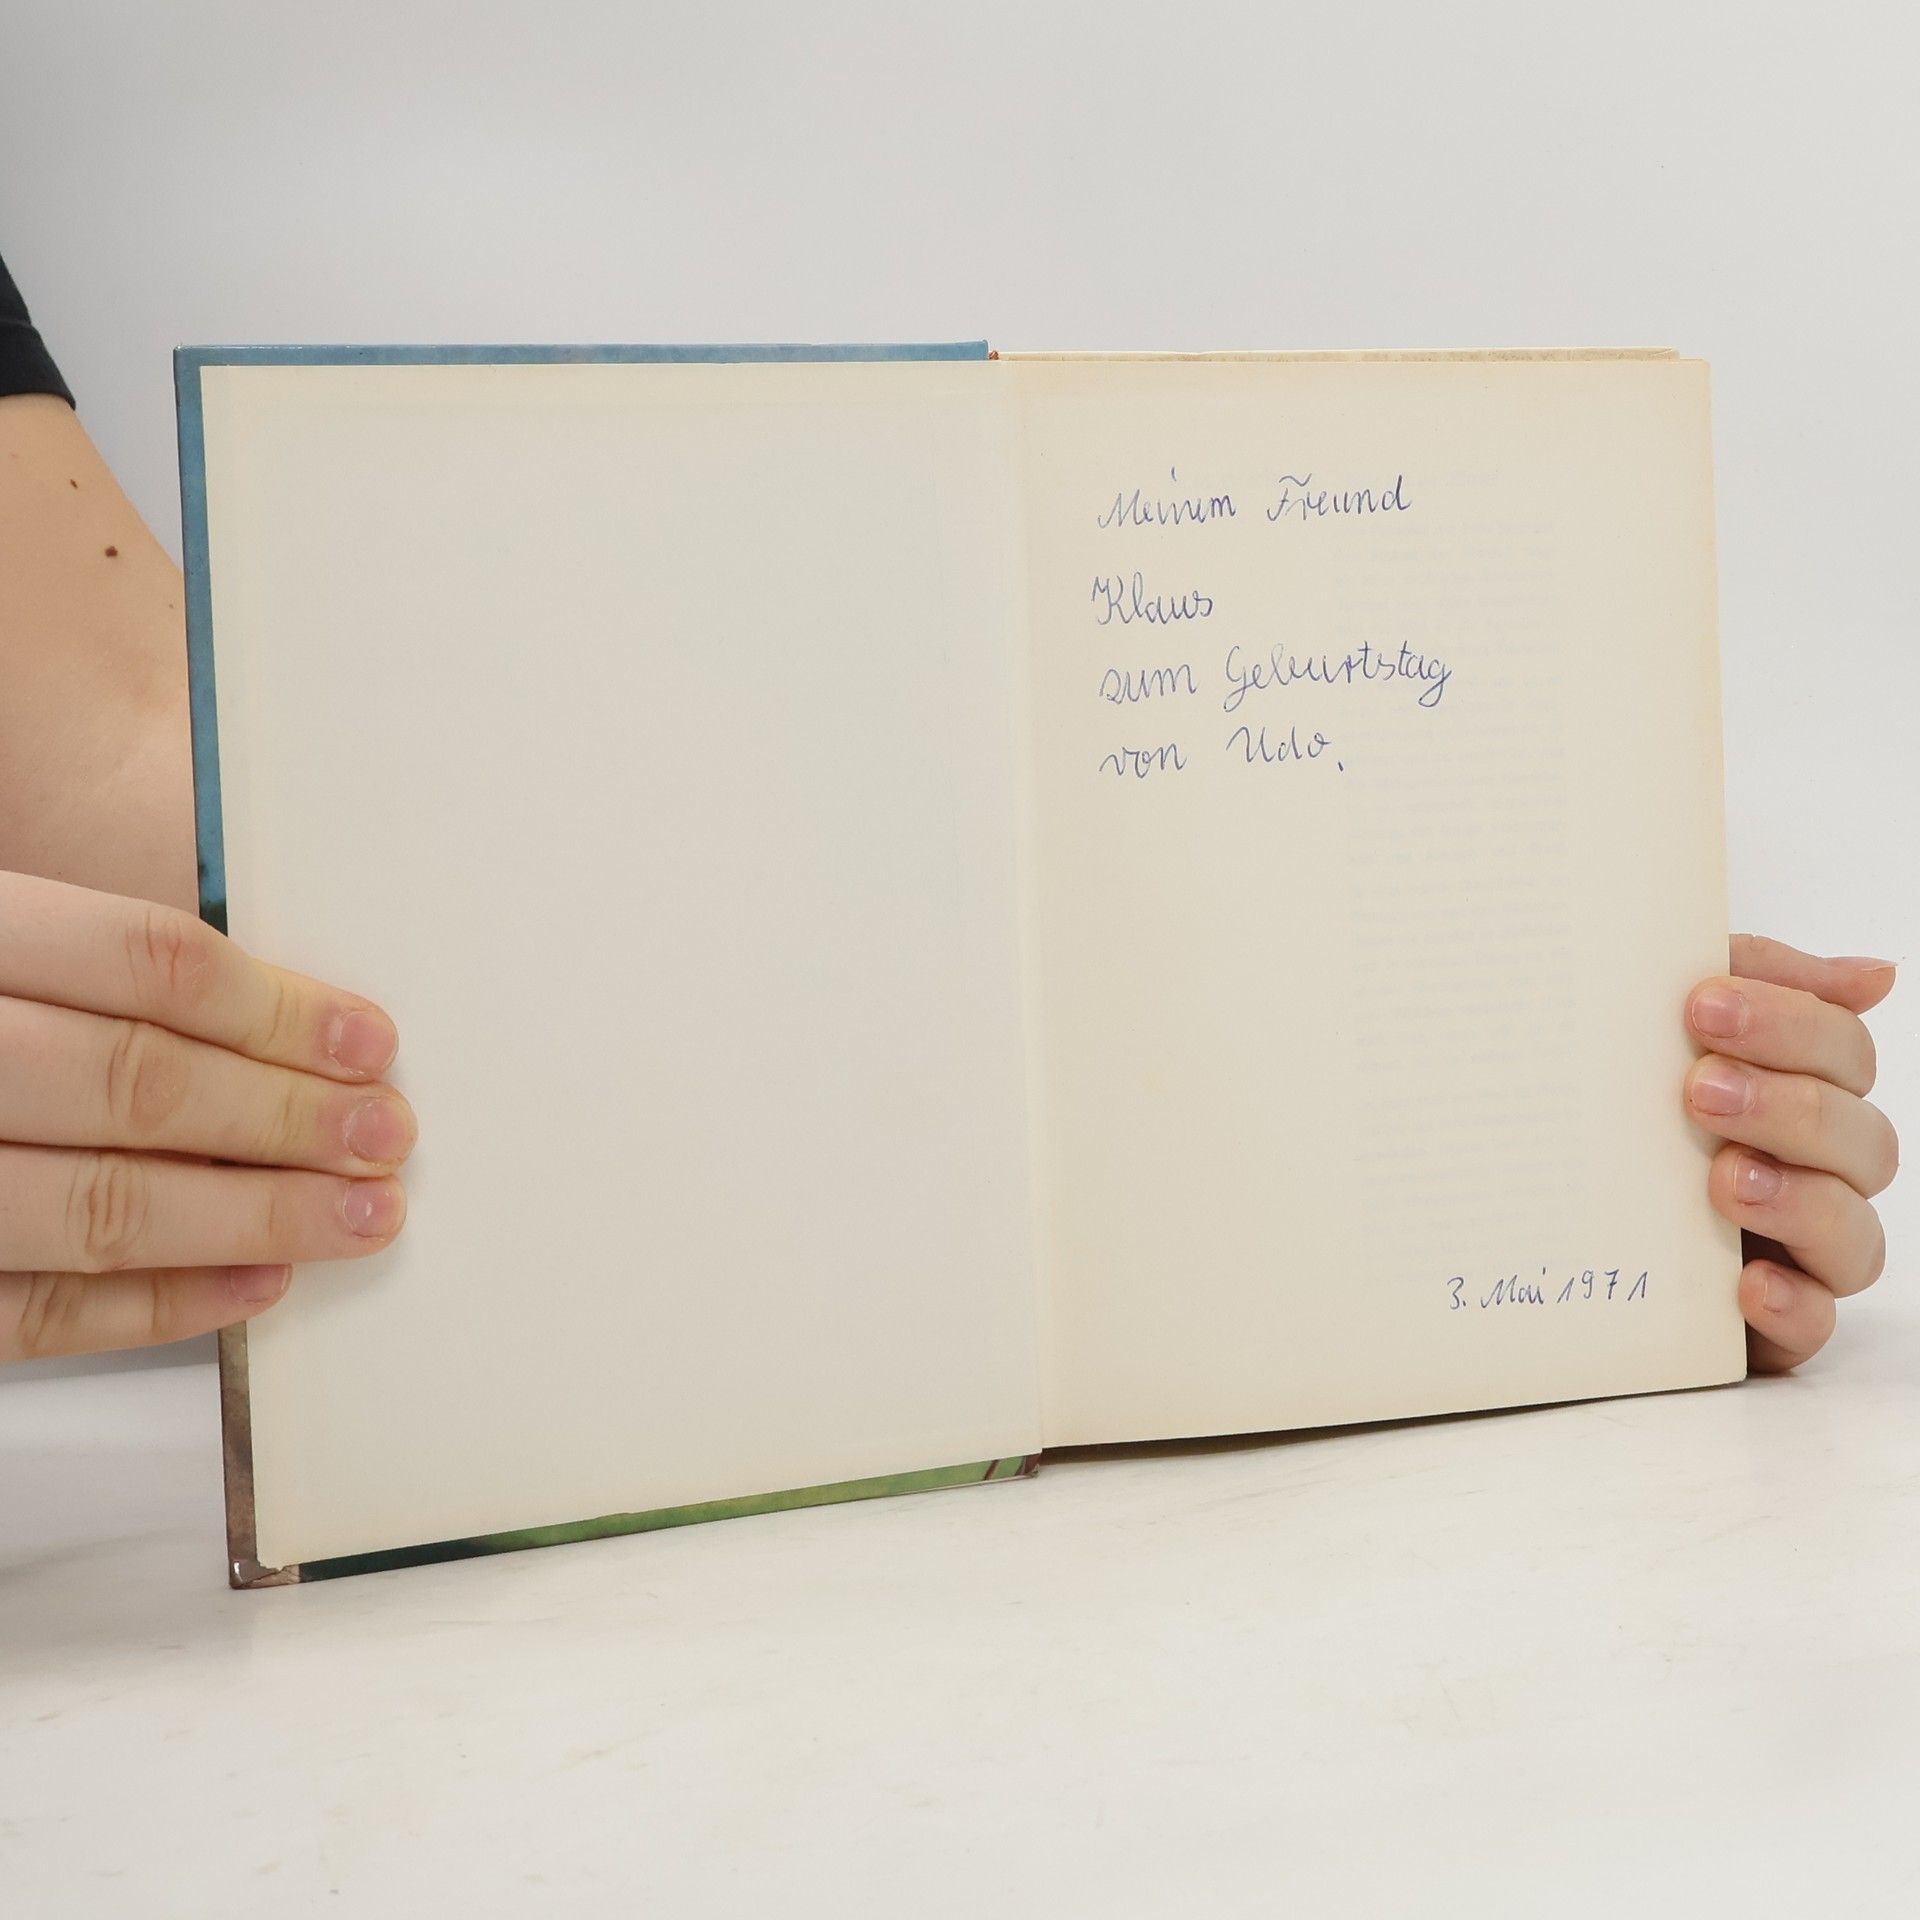 Meinem Freund
Klaus
zum Geburtstag
von Udo.
3. Mai 1971